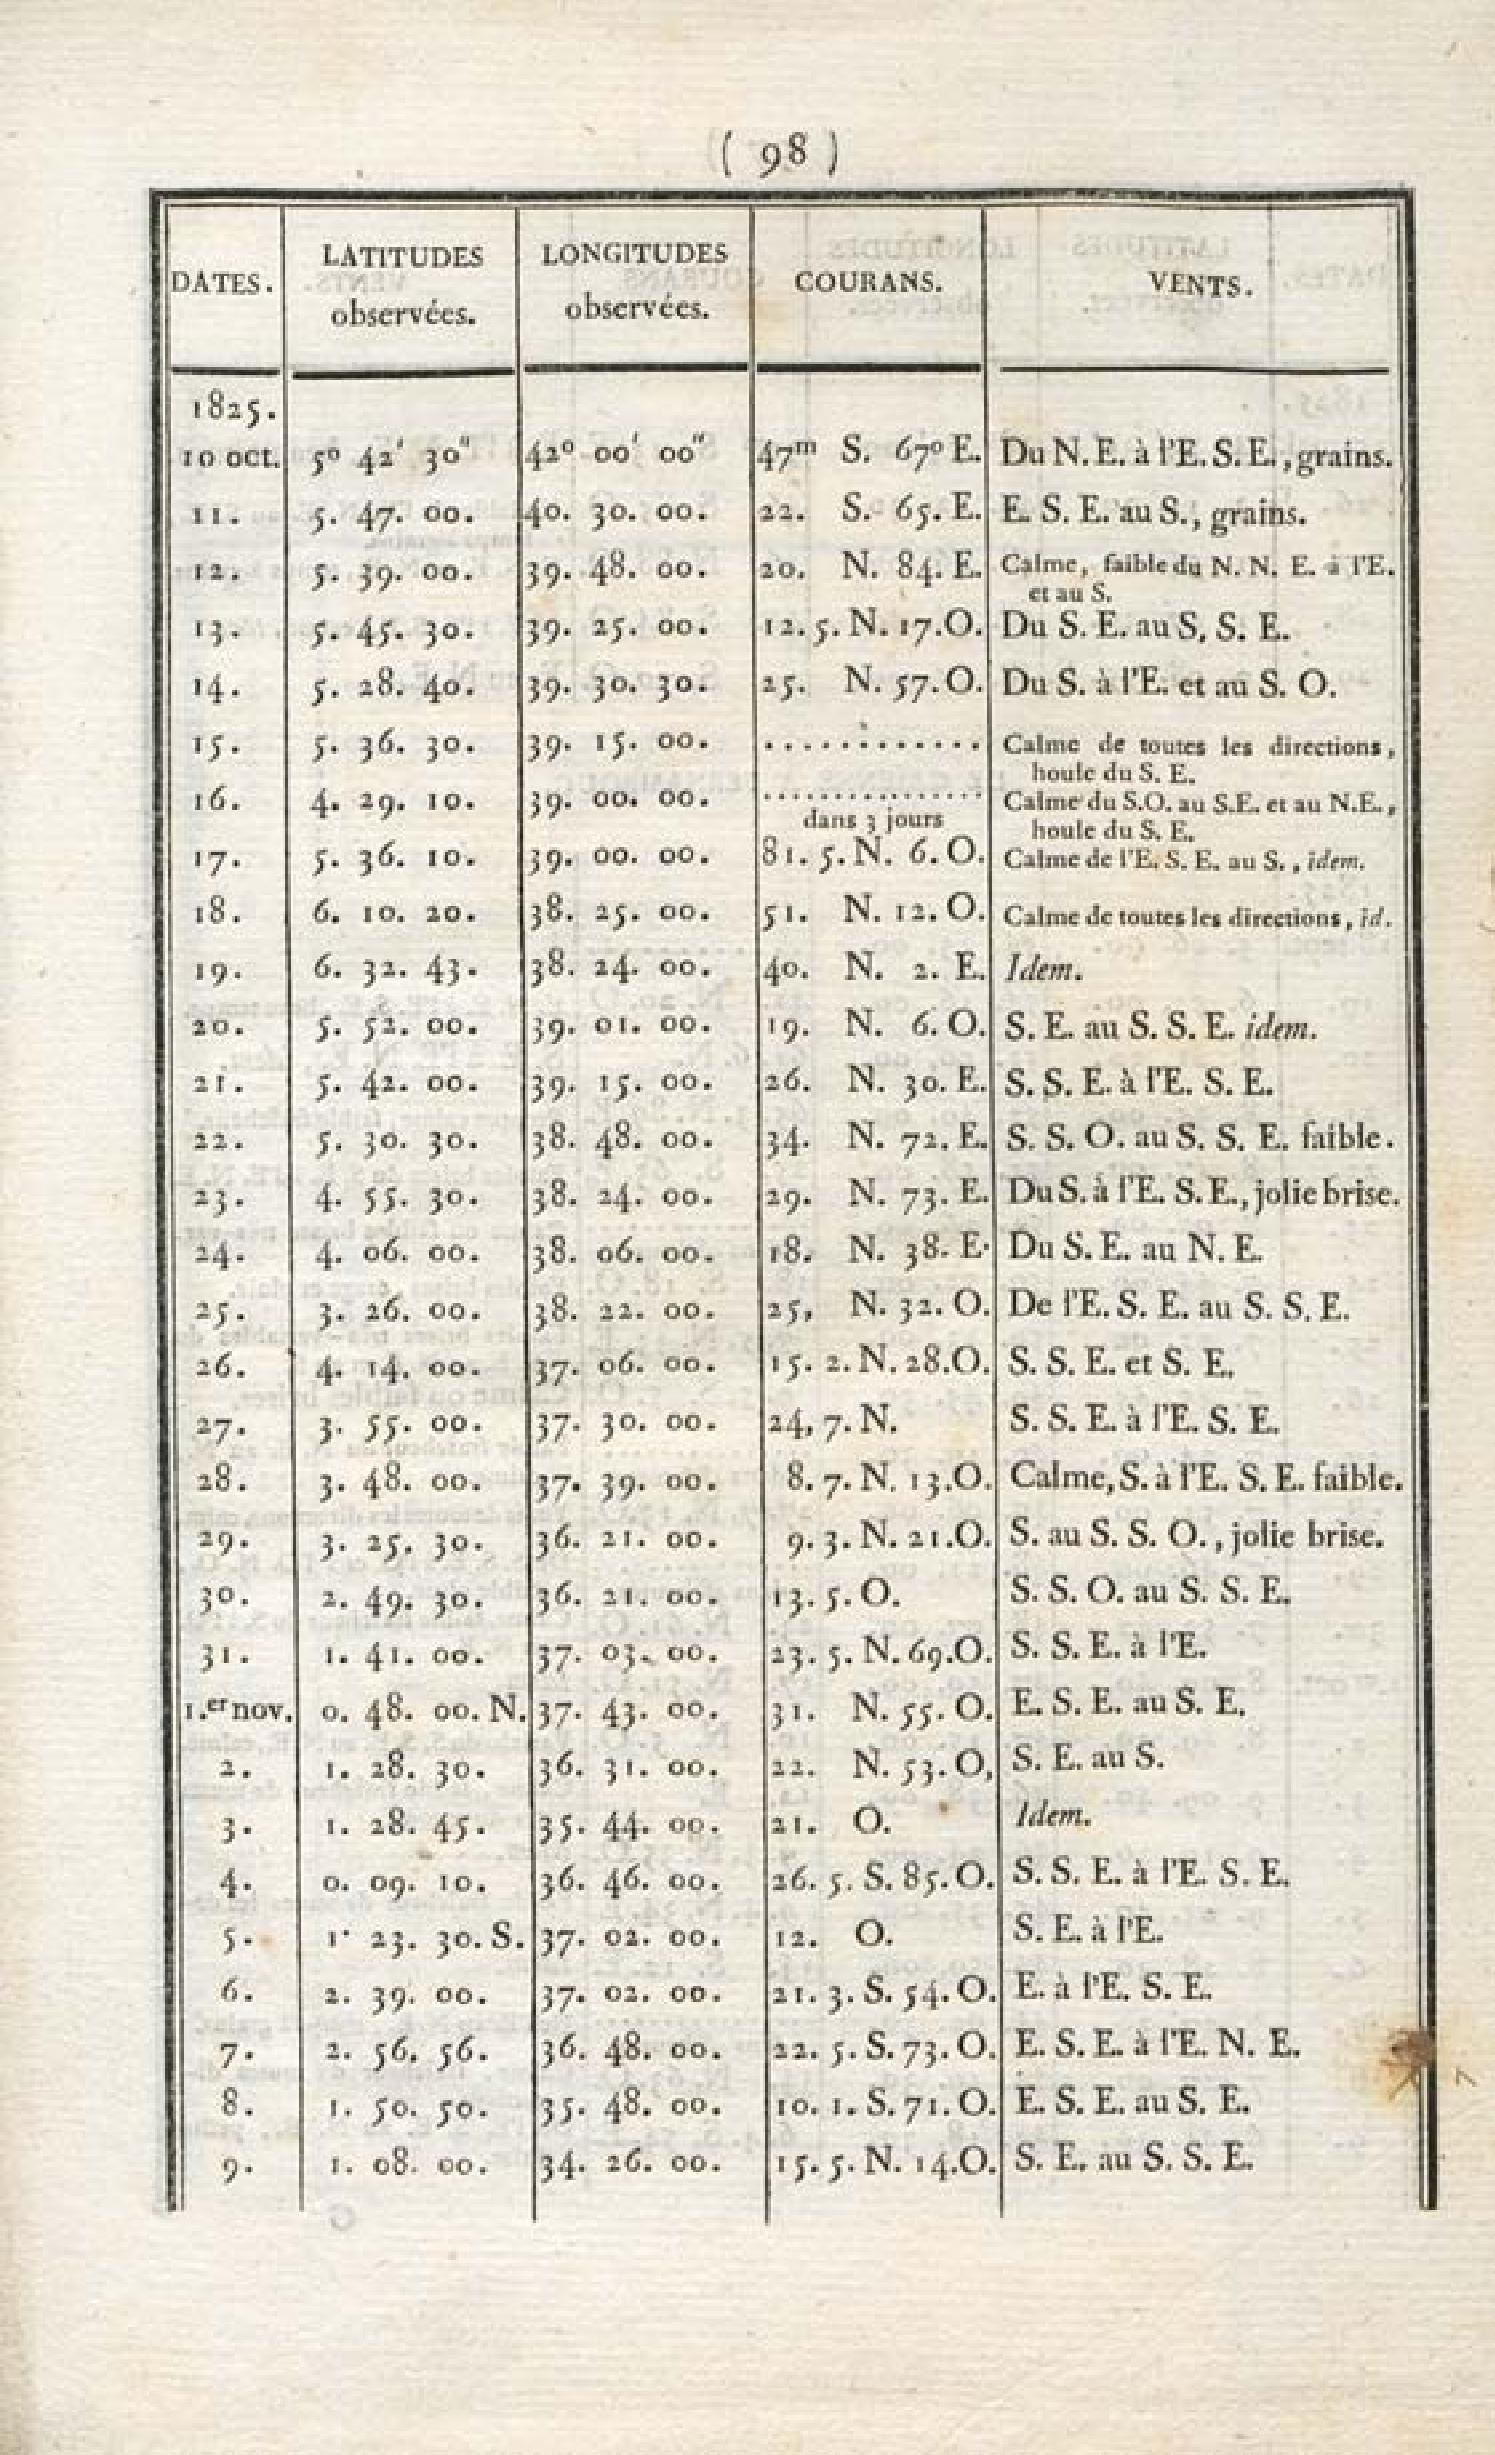 ( 98 )
DATES. LATITUDES observées. LONGITUDES observées. COURANS. VENTS.
1825.
10 oct. 5° 42' 30" 42° 00' 00" 47m S. 67° E. Du N. E. à l'E. S. E., grains.
11. 5. 47. 00. 40. 30. 00. 22. S. 65. E. E. S. E. au S., grains.
12. 5. 39. 00. 39. 48. 00. 20. N. 84. E. Calme, faible du N. N. E. à l'E.
et au S.
13. 5. 45. 30. 39. 25. 00. 12. 5. N. 17. O. Du S. E. au S, S. E.
14. 5. 28. 40. 39. 30. 30. 25. N. 57. O. Du S. à l'E. et au S. O.
15. 5. 36. 30. 39. 15. 00. ............ Calme de toutes les directions,
houle du S. E.
16. 4. 29. 10. 39. 00. 00. ............... Calme du S.O. au S.E. et au N.E.,
dans 3 jours houle du S. E.
17. 5. 36. 10. 39. 00. 00. 81. 5. N. 6. O. Calme de l'E. S. E. au S., idem.
18. 6. 10. 20. 38. 25. 00. 51. N. 12. O. Calme de toutes les directions, id.
19. 6. 32. 43. 38. 24. 00. 40. N. 2. E. Idem.
20. 5. 52. 00. 39. 01. 00. 19. N. 6. O. S. E. au S. S. E. idem.
21. 5. 42. 00. 39. 15. 00. 26. N. 30. E. S. S. E. à l'E. S. E.
22. 5. 30. 30. 38. 48. 00. 34. N. 72. E. S. S. O. au S. S. E. faible.
23. 4. 55. 30. 38. 24. 00. 29. N. 73. E. Du S. à l'E. S. E., jolie brise.
24. 4. 06. 00. 38. 06. 00. 18. N. 38. E. Du S. E. au N. E.
25. 3. 26. 00. 38. 22. 00. 25, N. 32. O. De l'E. S. E. au S. S. E.
26. 4. 14. 00. 37. 06. 00. 15. 2. N. 28. O. S. S. E. et S. E.
27. 3. 55. 00. 37. 30. 00. 24, 7. N. S. S. E. à l'E. S. E.
28. 3. 48. 00. 37. 39. 00. 8. 7. N. 13. O. Calme, S. à l'E. S. E. faible.
29. 3. 25. 30. 36. 21. 00. 9. 3. N. 21. O. S. au S. S. O., jolie brise.
30. 2. 49. 30. 36. 21. 00. 13. 5. O. S. S. O. au S. S. E.
31. 1. 41. 00. 37. 03. 00. 23. 5. N. 69. O. S. S. E. à l'E.
1.er nov. 0. 48. 00. N. 37. 43. 00. 31. N. 55. O. E. S. E. au S. E.
2. 1. 28. 30. 36. 31. 00. 22. N. 53. O, S. E. au S.
3. 1. 28. 45. 35. 44. 00. 21. O. Idem.
4. 0. 09. 10. 36. 46. 00. 26. 5. S. 85. O. S. S. E. à l'E. S. E.
5. 1. 23. 30. S. 37. 02. 00. 12. O. S. E. à l'E.
6. 2. 39. 00. 37. 02. 00. 21. 3. S. 54. O. E. à l'E. S. E.
7. 2. 56. 56. 36. 48. 00. 22. 5. S. 73. O. E. S. E. à l'E. N. E.
8. 1. 50. 50. 35. 48. 00. 10. 1. S. 71. O. E. S. E. au S. E.
9. 1. 08. 00. 34. 26. 00. 15. 5. N. 14. O. S. E. au S. S. E.